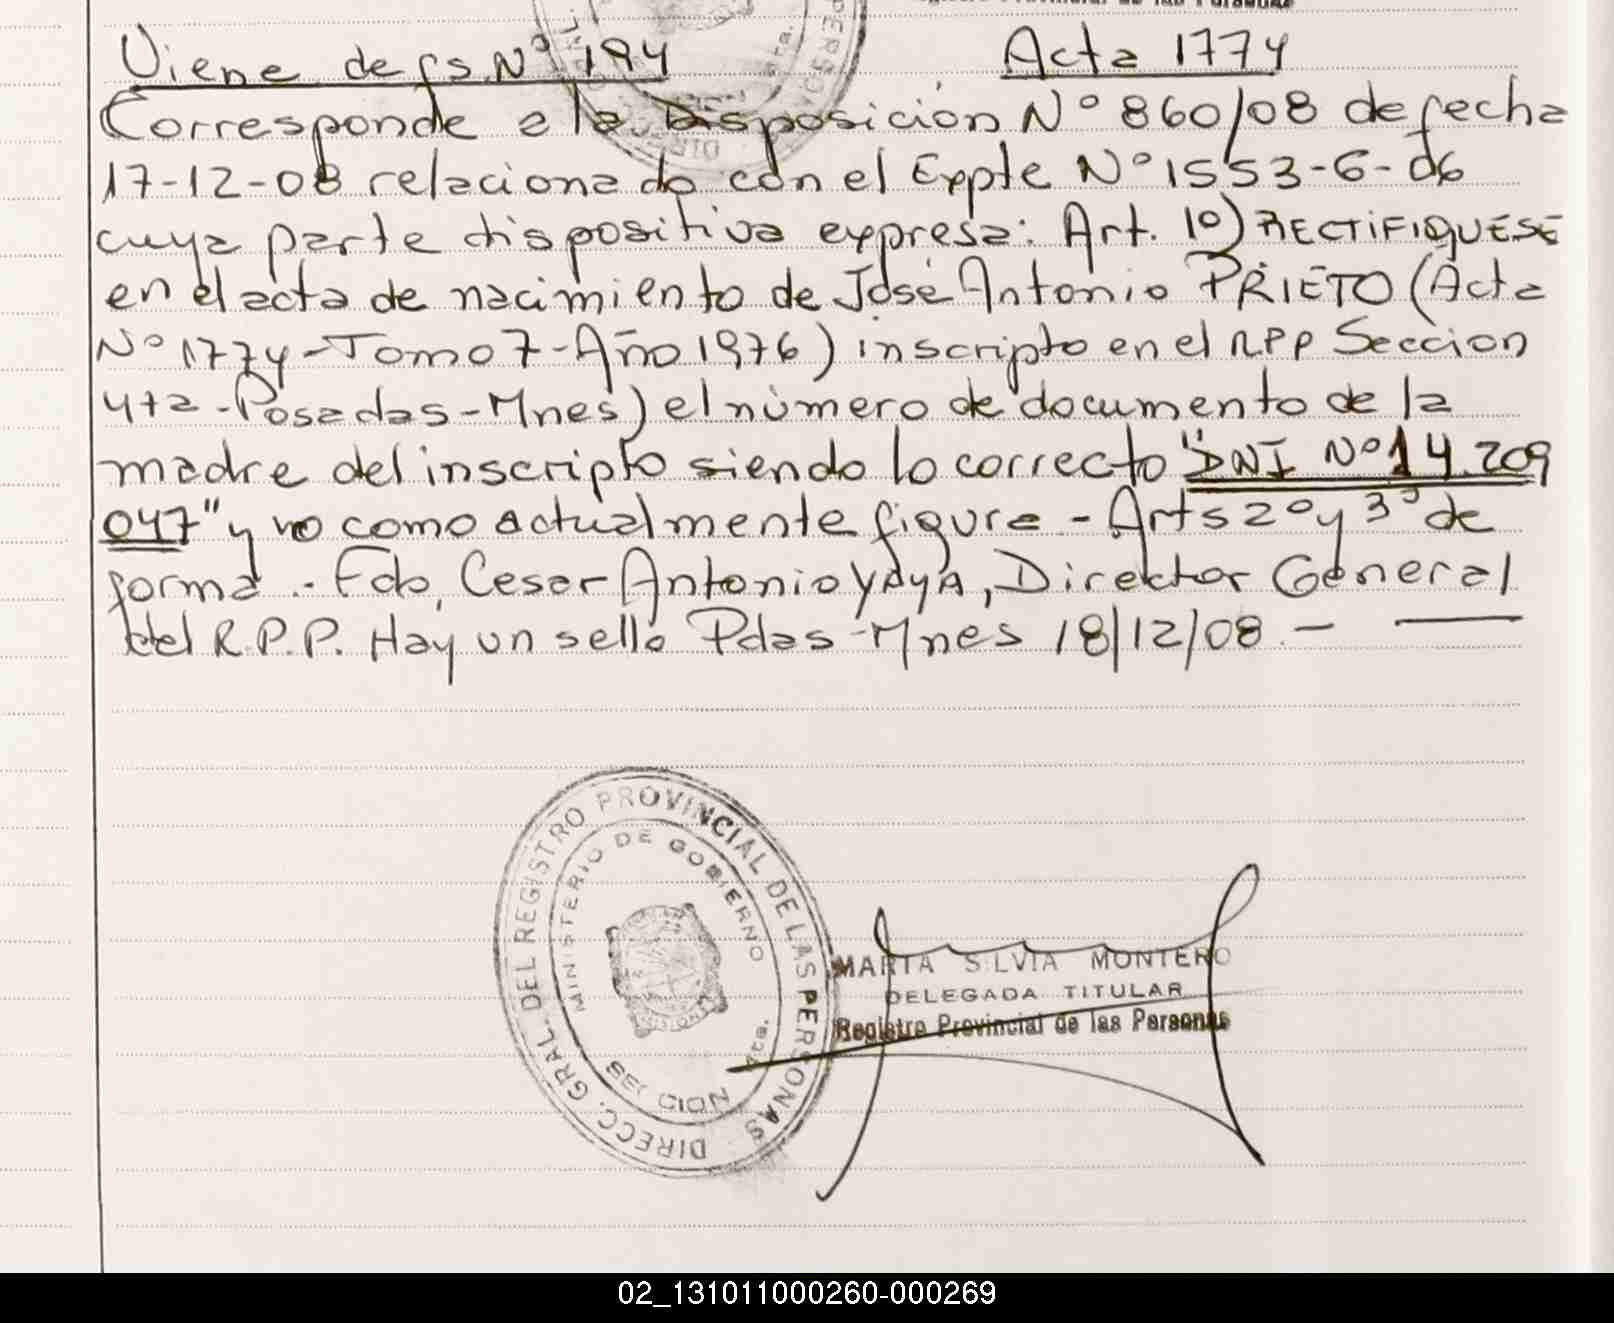 Viene de fs. Nº 194
Acta 1774
Corresponde a la Disposición Nº 860/08 de fecha
17-12-08 relacionado con el Expte Nº 1553-6-06
cuya parte dispositiva expresa: Art. 1º) RECTIFIQUESE
en el acta de nacimiento de José Antonio PRIETO (Acta
Nº 1774-Tomo 7-Año 1976) inscripto en el RPP Seccion
4ta-Posadas-Mnes) el número de documento de la
madre del inscripto siendo lo correcto "DNI Nº 14.209
047" y no como actualmente figura - Arts 2º y 3º de
forma.- Fdo, Cesar Antonio YAYA, Director General
del R.P.P. Hay un sello Pdas-Mnes 18/12/08.-
DIRECC. GRAL. DEL REGISTRO PROVINCIAL DE LAS PERSONAS
MINISTERIO DE GOBIERNO
SECCION 4ta.
MARTA SILVIA MONTERO
DELEGADA TITULAR
Registro Provincial de las Personas
02_131011000260-000269